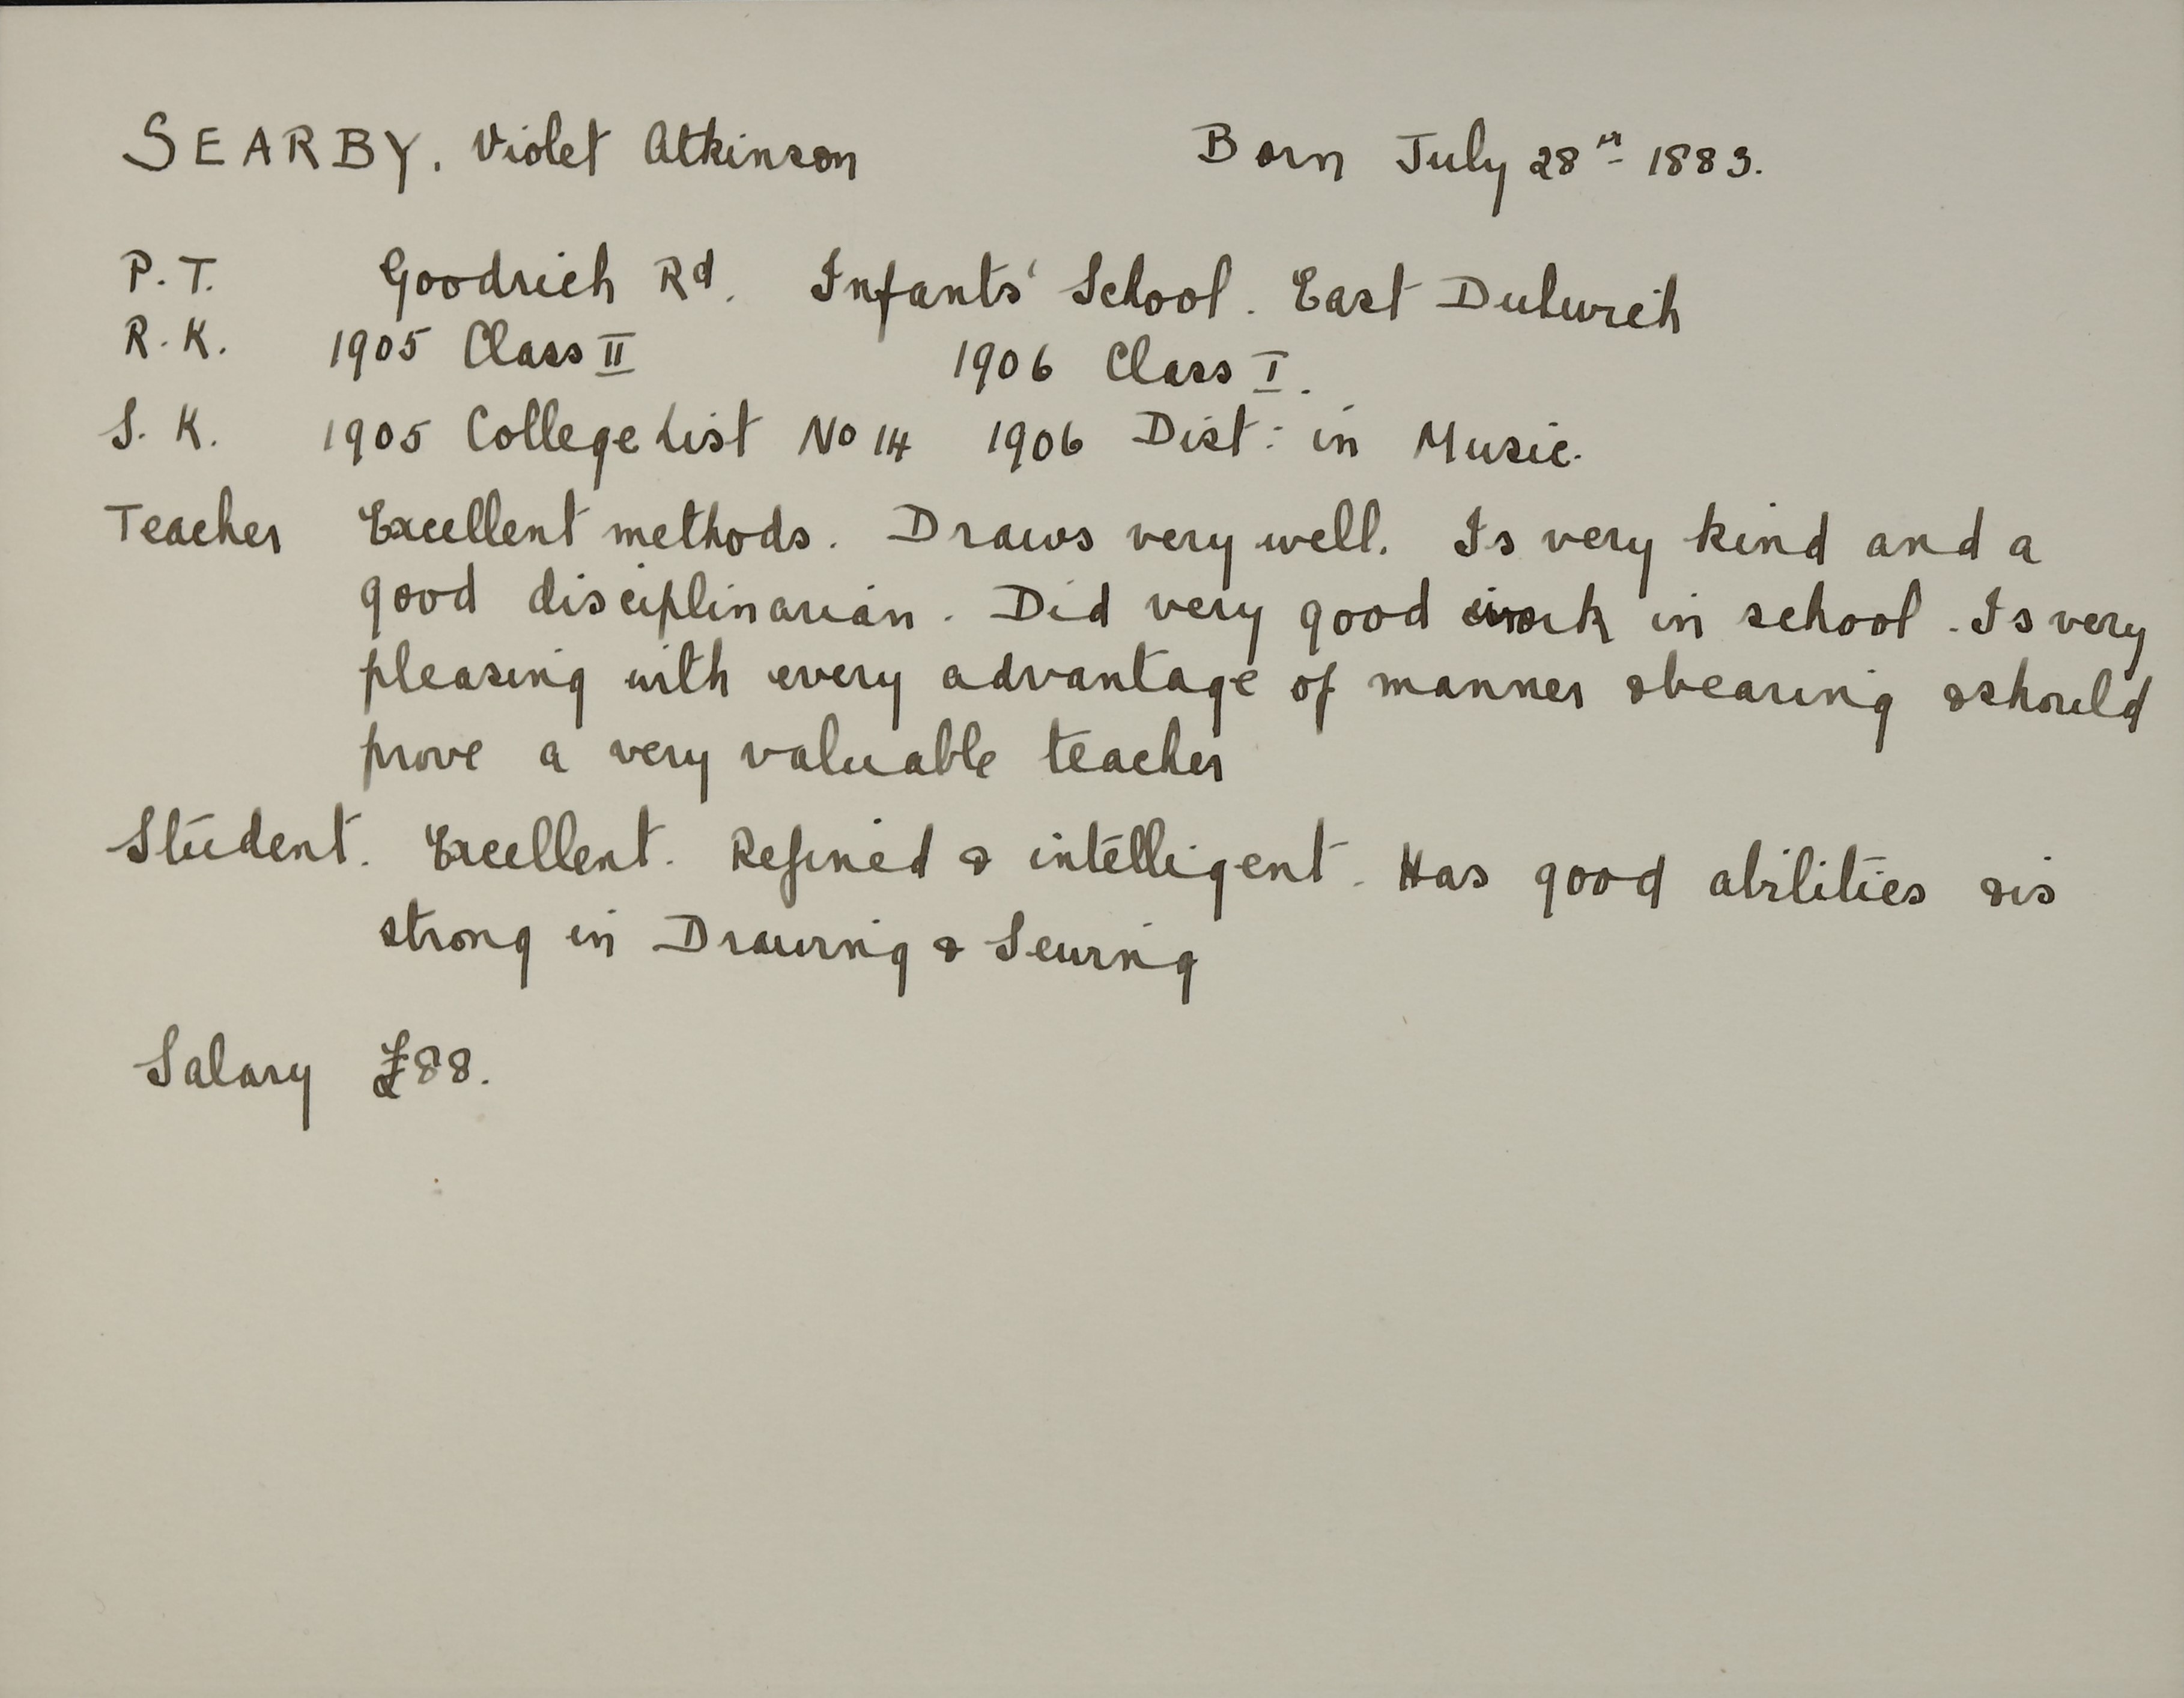 SEARBY. Violet Atkinson Born July 28th 1883.
P.T. Goodrich Rd. Infants' School. East Dulwich
R.K. 1905 Class II 1906 Class I.
S.K. 1905 College List No 14 1906 Dist: in Music.
Teacher Excellent methods. Draws very well. Is very kind and a
good disciplinarian. Did very good work in school. Is very
pleasing with every advantage of manner & bearing & should
prove a very valuable teacher
Student. Excellent. Refined & intelligent. Has good abilities & is
strong in Drawing & Sewing
Salary £88.